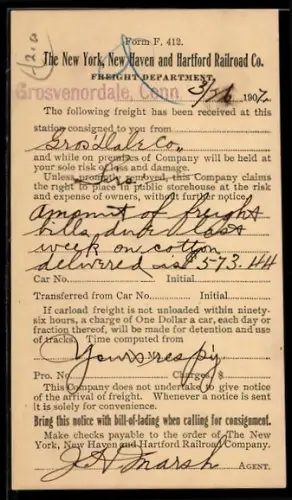 Form F. 412.
The New York, New Haven and Hartford Railroad Co.
FREIGHT DEPARTMENT,
Grosvenordale, Conn 3/21 1907
The following freight has been received at this
station consigned to you from
Gros'Dale Co.
and while on premises of Company will be held at
your sole risk of loss and damage.
Unless promptly removed, this Company claims
the right to place in public storehouse at the risk
and expense of owners, without further notice.
amount of freight
bills due last
week on cotton
delivered is $573.44
Car No. Initial
Transferred from Car No. Initial
If carload freight is not unloaded within ninety-
six hours, a charge of One Dollar a car, each day or
fraction thereof, will be made for detention and use
of tracks. Time computed from
Yours resp'y
M.
Pro. No. Charges $
This Company does not undertake to give notice
of the arrival of freight. Whenever a notice is sent
it is solely for convenience.
Bring this notice with bill-of-lading when calling for consignment.
Make checks payable to the order of The New
York, New Haven and Hartford Railroad Company.
J. H. Marsh AGENT.